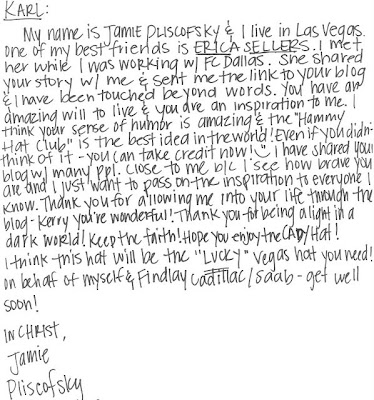 KARL:
My name is JAMIE PLISCOFSKY & I live in Las Vegas.
one of my best friends is ERICA SELLERS. I met
her while I was working w/ FC Dallas. She shared
your story w/ me & sent me the link to your blog
& I have been touched beyond words. You have an
amazing will to live & you are an inspiration to me. I
think your sense of humor is amazing & the "Hammy
Hat Club" is the best idea in the world! Even if you didn't
think of it - you can take credit now! I have shared your
blog w/ many ppl. close to me b/c I see how brave you
are and I just want to pass on the inspiration to everyone I
know. Thank you for allowing me into your life through the
blog - Kerry you're wonderful! Thank you for being a light in a
dark world! Keep the faith! Hope you enjoy the CADY Hat!
I think this hat will be the "LUCKY" vegas hat you need!
on behalf of myself & Findlay Cadillac/Saab - get well
soon!
IN CHRIST,
Jamie
Pliscofsky